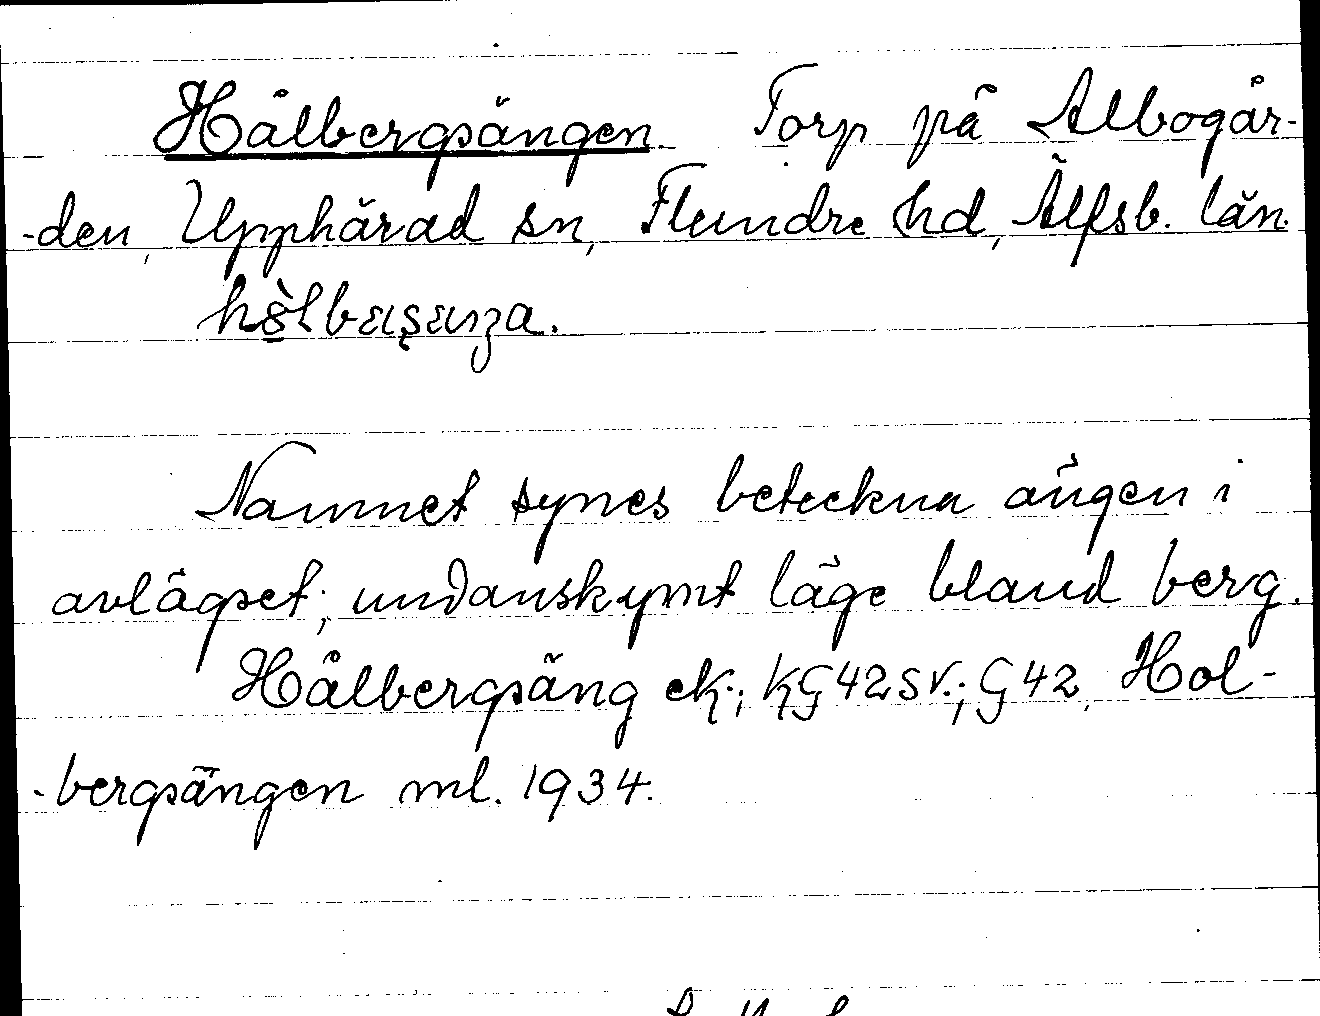 Hålbergsängen. Torp på Albogår-
-den, Upphärad sn, Flundre hd, Älfsb. län.
Namnet synes beteckna ängen i
avlägset, undanskymt läge bland berg.
Hålbergsäng ek.; KG42SV.; G42, Hol-
-bergsängen ml. 1934.